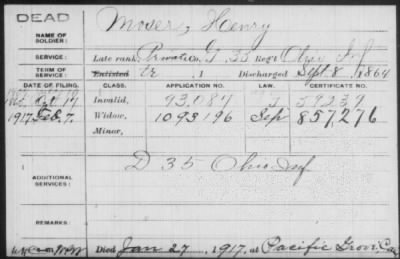 DEAD
NAME OF SOLDIER: Moser, Henry
SERVICE: Late rank, Private Co. G, 35 Reg't Ohio Inf
TERM OF SERVICE: Enlisted , 1 Discharged Sept. 8, 1864
DATE OF FILING. CLASS. APPLICATION NO. CERTIFICATE NO.
Invalid, 43,084 59239
1917, Feb. 7. Widow, 1093196 Sep 857,276
Minor,
ADDITIONAL SERVICES: D 35 Ohio Inf
REMARKS:
Died Jan 27, 1917, at Pacific Grove, Cal